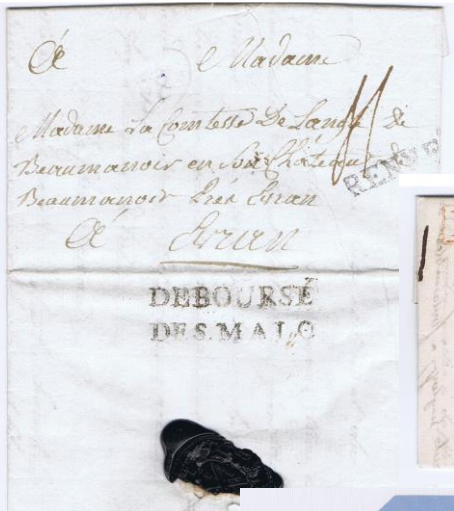 A Madame
Madame La Comtesse De Langa de
Beaumanoir en son Château de
RENNES
Beaumanoir près Evran
A Evran
DEBOURSÉ
DE S. MALO